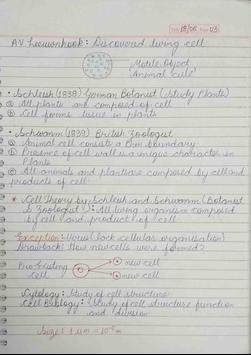 Date 18/06 Page 03
A.V Leeuwenhook: Discovered living cell
"Motile Object
Animal cule"
• Schleish (1838) German Botanist (Study Plants)
a) All plants are composed of cell
b) Cell forms tissue in plants
• Schwann (1839) British Zoologist
a) Animal cell consists a thin boundary
b) Presence of cell wall is a unique character in
Plants
c) All animals and plants are composed by cell and
products of cell
* Cell Theory by Schleish and Schwann (Botanist
& Zoologist): All living organism composed
by cell and product of cell
Exception: Virus (lack cellular organisation)
Drawback: How new cells were formed?
Pre-Existing
Cell
new cell
new cell
Cytology: Study of cell structure
Cell Biology: Study of cell structure function
and division
Size: 1 μm = 10⁻⁶m